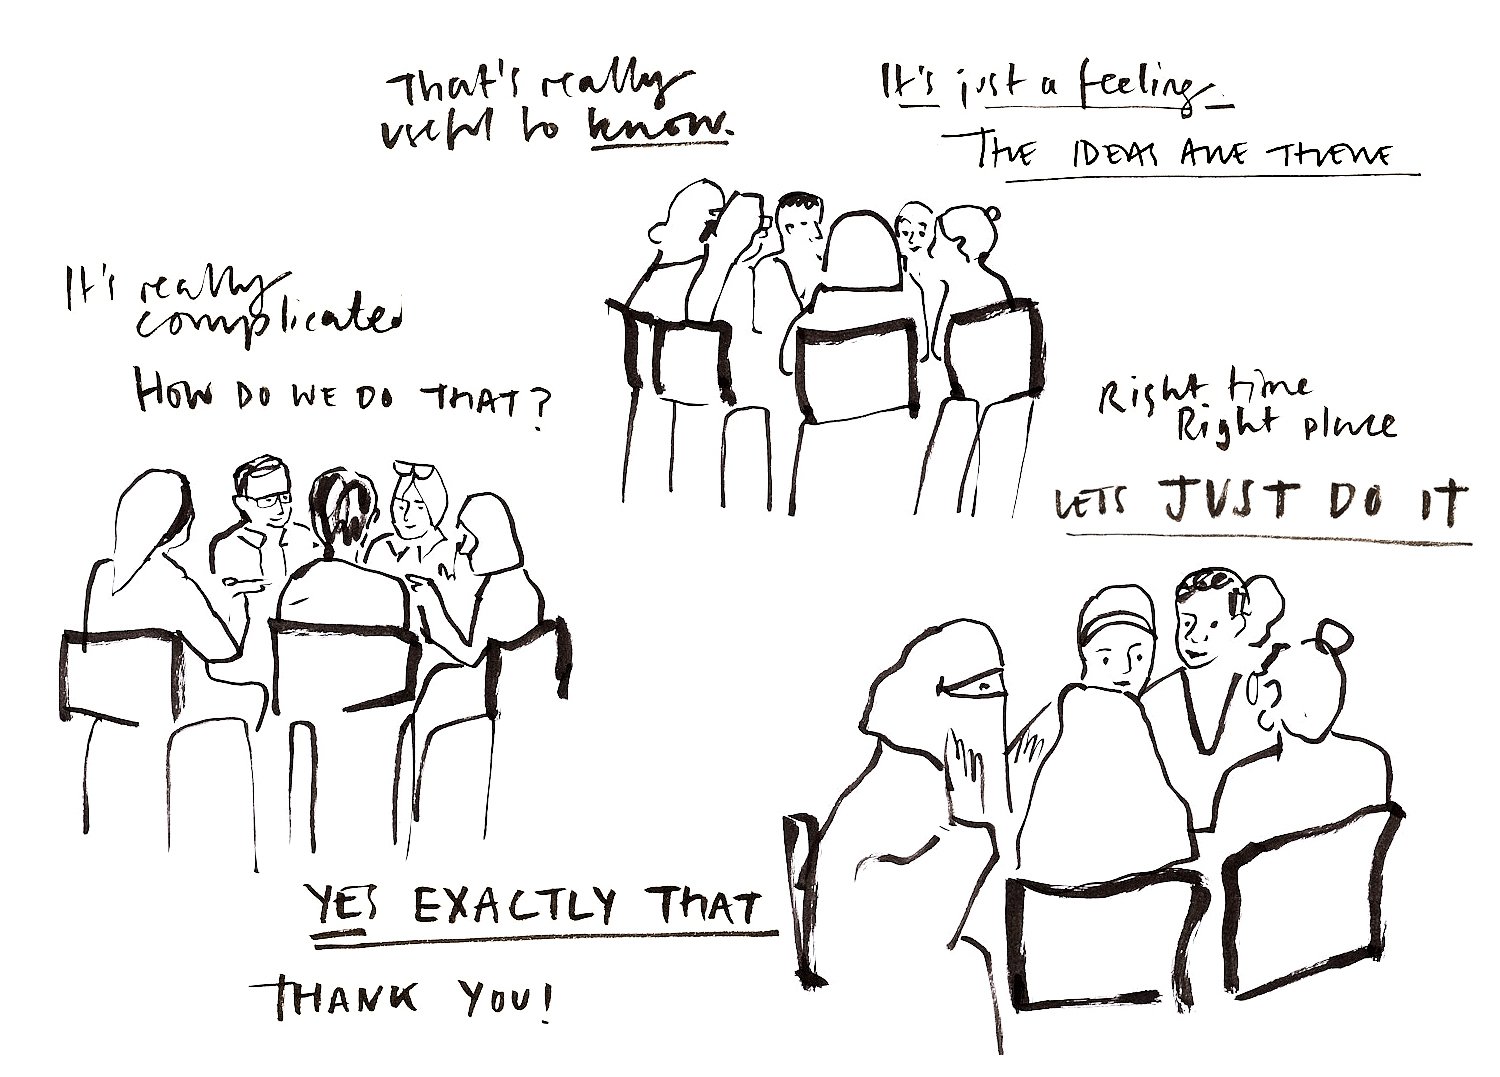 That's really
useful to know.
It's just a feeling.
THE IDEAS ARE THERE
It's really
complicated
HOW DO WE DO THAT?
Right time
Right place
LETS JUST DO IT
YES EXACTLY THAT
THANK YOU!